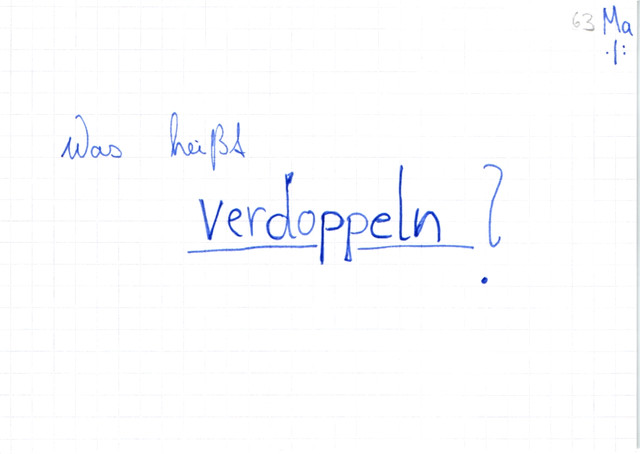 63 Ma
·/:
Was heißt
verdoppeln?